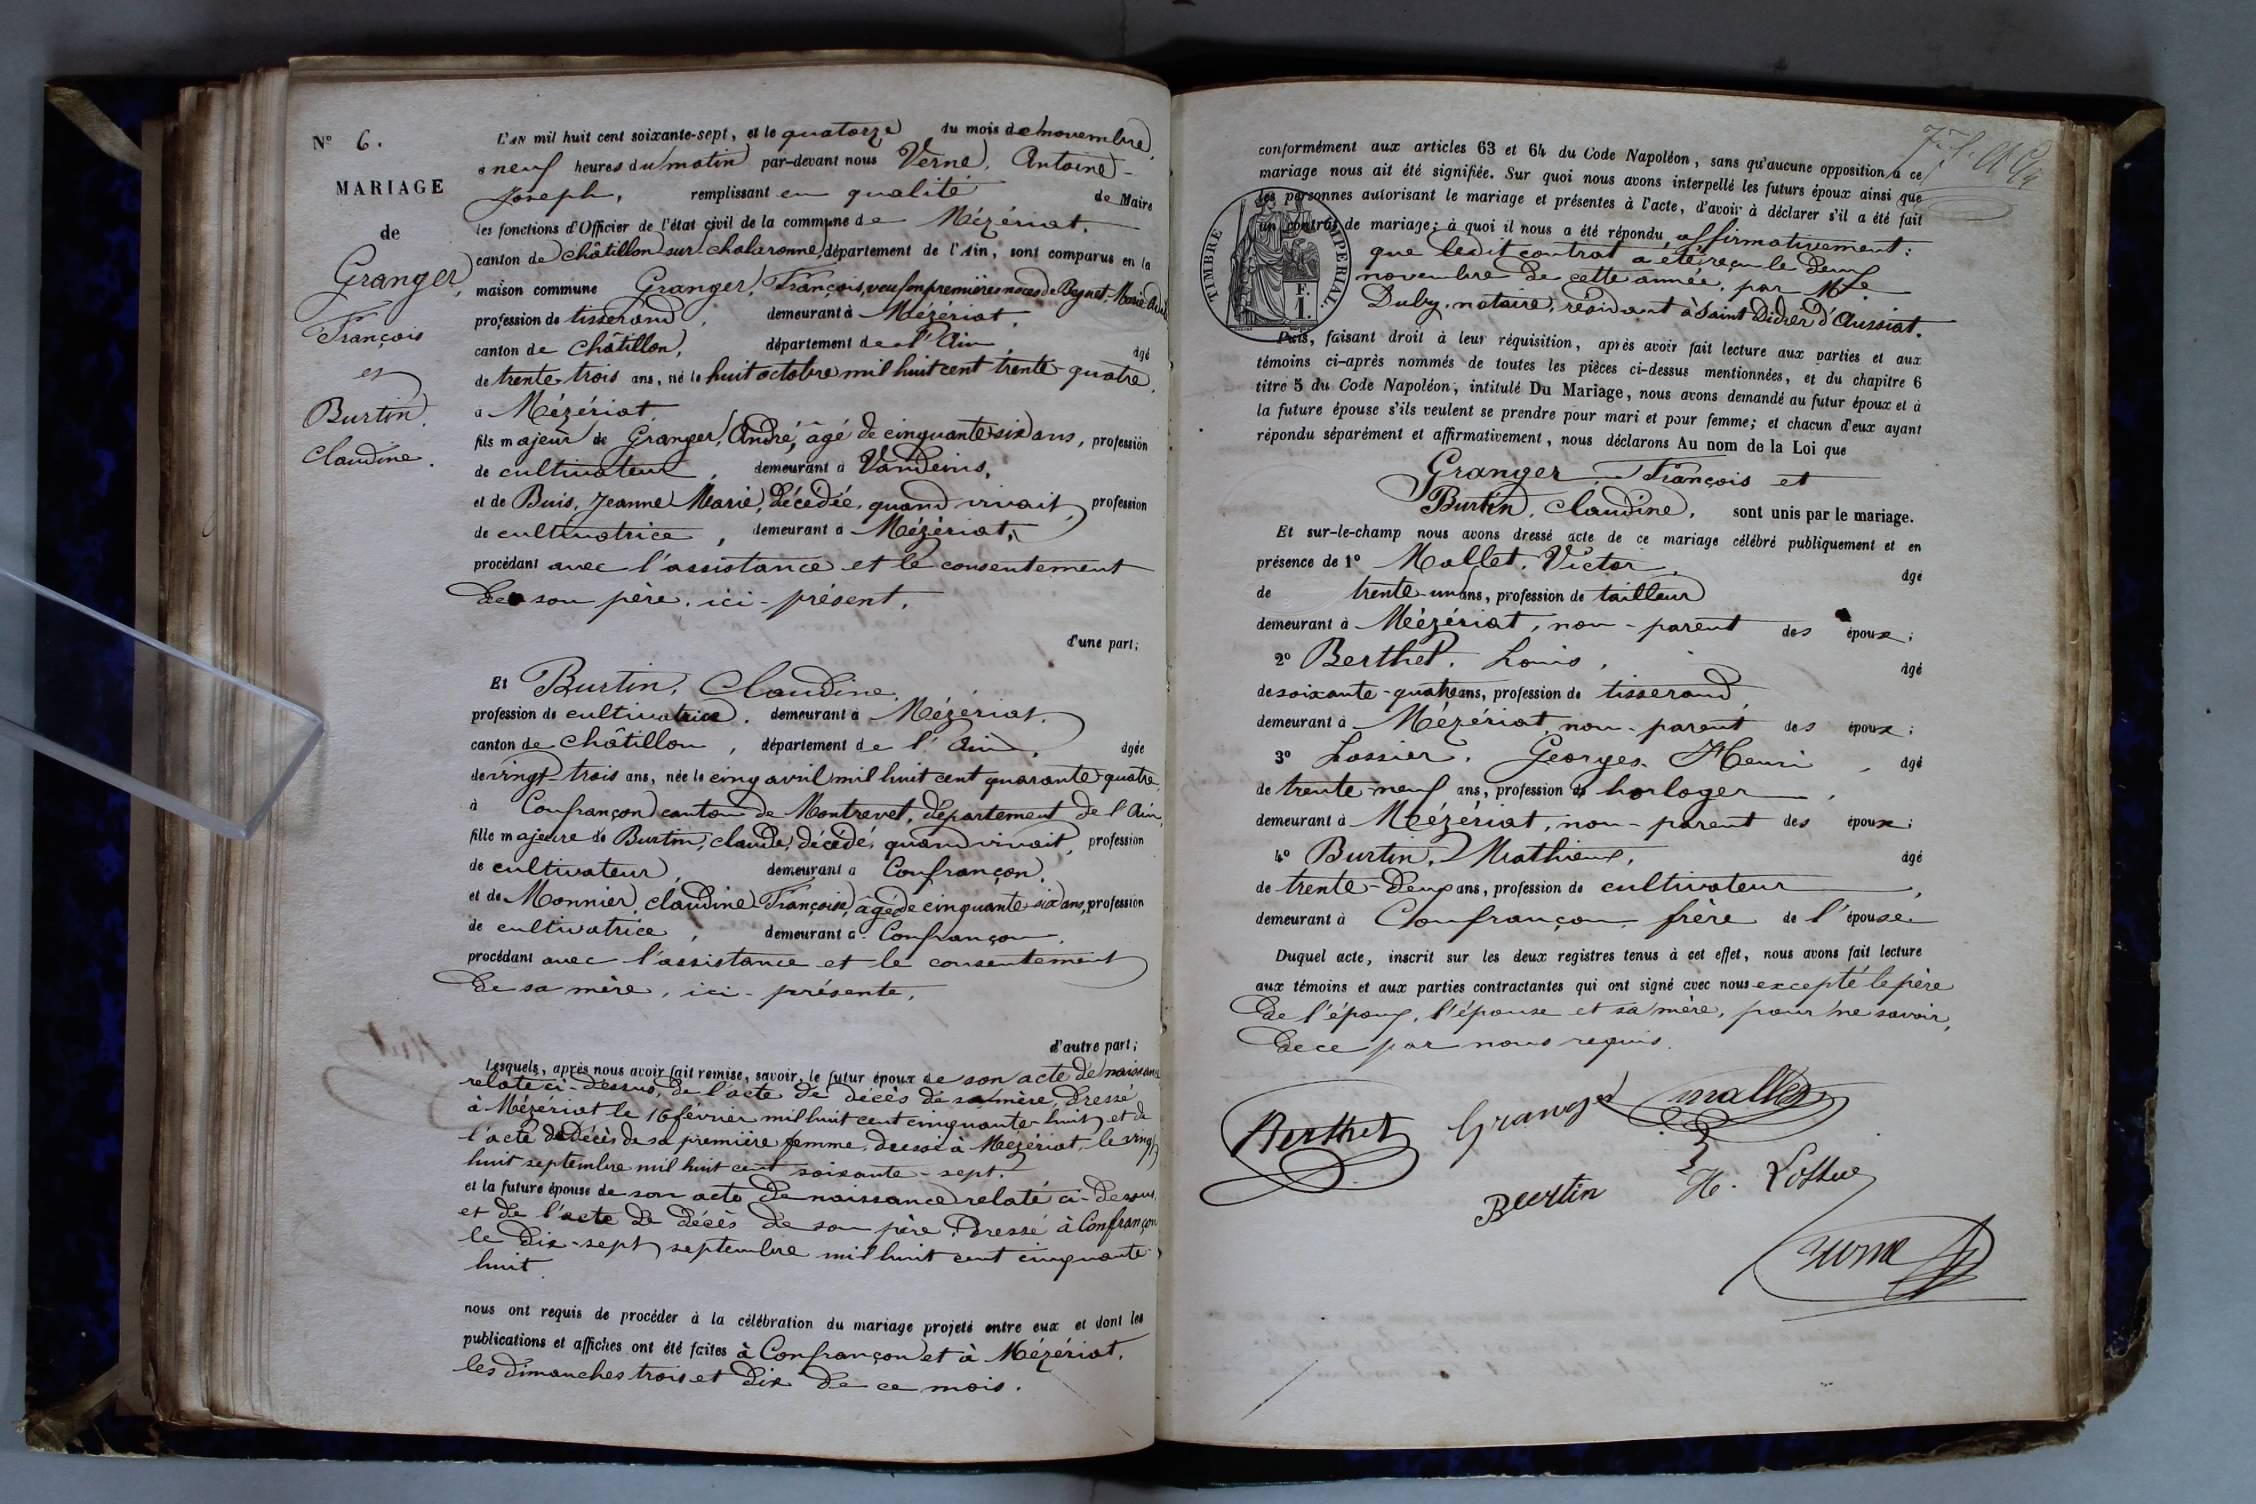 N° 6.
MARIAGE
de
Granger,
François
et
Burtin,
Claudine.
L'AN mil huit cent soixante-sept, et le quatorze du mois de novembre,
à neuf heures du matin par-devant nous Verne, Antoine-
Joseph, remplissant en qualité de Maire
les fonctions d'Officier de l'état civil de la commune de Mézériat,
canton de châtillon sur chalaronne, département de l'Ain, sont comparus en la
maison commune Granger, François, veuf en premières noces de Marie
profession de tisserand, demeurant à Mézériat,
canton de Châtillon, département de l'Ain, âgé
de trente-trois ans, né le huit octobre mil huit cent trente-quatre,
à Mézériat,
fils majeur de Granger, André, âgé de cinquante-six ans, profession
de cultivateur, demeurant à Vandeins,
et de Buis, Jeanne Marie, décédée, quand vivait, profession
de cultivatrice, demeurant à Mézériat,
procédant avec l'assistance et le consentement
de son père, ici-présent,
d'une part;
Et Burtin, Claudine,
profession de cultivatrice, demeurant à Mézériat,
canton de Châtillon, département de l'Ain, âgée
de vingt-trois ans, née le cinq avril mil huit cent quarante-quatre,
à Confrançon canton de Montrevel, département de l'Ain,
fille majeure de Burtin, claude, décédé, quand vivait, profession
de cultivateur, demeurant à Confrançon,
et de Monnier, claudine Françoise, âgée de cinquante-six ans, profession
de cultivatrice, demeurant à Confrançon,
procédant avec l'assistance et le consentement
de sa mère, ici-présente,
d'autre part;
Lesquels, après nous avoir fait remise, savoir, le futur époux de son acte de naissance
relaté ci-dessus, de l'acte de décès de sa mère, dressé
à Mézériat le 16 février mil huit cent cinquante-huit, et de
l'acte de décès de sa première femme, dressé à Mézériat, le vingt
huit septembre mil huit cent soixante-sept.
et la future épouse de son acte de naissance relaté ci-dessus,
et de l'acte de décès de son père, dressé à Confrançon
le dix-sept septembre mil huit cent cinquante-
huit.
nous ont requis de procéder à la célébration du mariage projeté entre eux et dont les
publications et affiches ont été faites à Confrançon et à Mézériat,
les dimanches trois et dix de ce mois.
conformément aux articles 63 et 64 du Code Napoléon, sans qu'aucune opposition à ce
mariage nous ait été signifiée. Sur quoi nous avons interpellé les futurs époux ainsi que
les personnes autorisant le mariage et présentes à l'acte, d'avoir à déclarer s'il a été fait
un contrat de mariage; à quoi il nous a été répondu, affirmativement:
que ledit contrat a été reçu le deux
novembre de cette année, par Me
Duby, notaire, résidant à Saint Didier d'Aussiat.
TIMBRE IMPERIAL
F.
1.
Puis, faisant droit à leur réquisition, après avoir fait lecture aux parties et aux
témoins ci-après nommés de toutes les pièces ci-dessus mentionnées, et du chapitre 6
titre 5 du Code Napoléon, intitulé Du Mariage, nous avons demandé au futur époux et à
la future épouse s'ils veulent se prendre pour mari et pour femme; et chacun d'eux ayant
répondu séparément et affirmativement, nous déclarons Au nom de la Loi que
Granger, François et
Burtin, Claudine, sont unis par le mariage.
Et sur-le-champ nous avons dressé acte de ce mariage célébré publiquement et en
présence de 1° Mallet, Victor, âgé
de trente-un ans, profession de tailleur
demeurant à Mézériat, non-parent des époux;
2° Berthet, Louis, âgé
de soixante-quatre ans, profession de tisserand,
demeurant à Mézériat, non-parent des époux;
3° Lossier, Georges Henri, âgé
de trente-neuf ans, profession de horloger,
demeurant à Mézériat, non-parent des époux;
4° Burtin, Mathieu, âgé
de trente-deux ans, profession de cultivateur,
demeurant à Confrançon, frère de l'épouse.
Duquel acte, inscrit sur les deux registres tenus à cet effet, nous avons fait lecture
aux témoins et aux parties contractantes qui ont signé avec nous excepté le père
de l'époux, l'épouse et sa mère, pour ne savoir,
de ce par nous requis.
Berthet Granger Mallet
Burtin H. Lossier
Verne